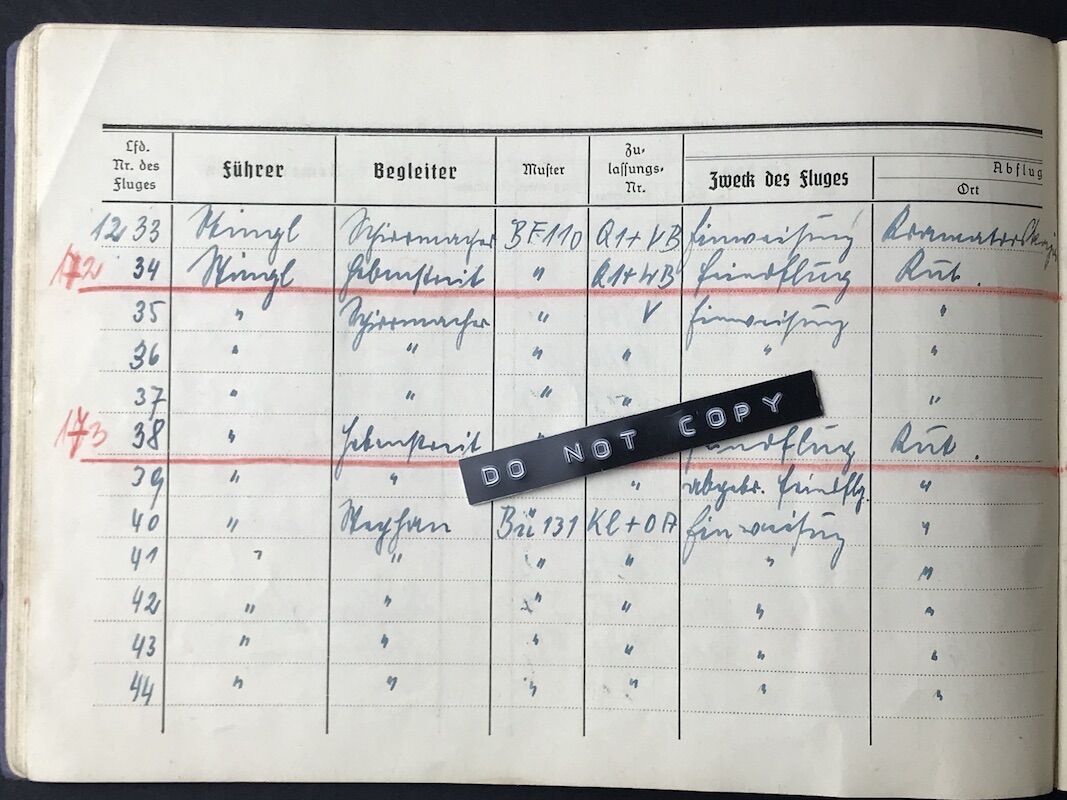 Lfd. Nr. des Fluges Führer Begleiter Muster Zu- lassungs- Nr. Zweck des Fluges Abflug Ort
1233 Stingl Schirrmacher BF110 Q1+VB Einweisung Kramatorskaja
172 34 Stingl Hebenstreit " Q1+WB Feindflug Kut.
35 " Schirrmacher " V Einweisung "
36 " " " " " "
37 " " " " "
173 38 " Hebenstreit " Feindflug Kut.
DO NOT COPY
39 " " " abgebr. Feindflg. "
40 " Stephan Bü131 Kl+OA Einweisung "
41 " " " " " "
42 " " " " " "
43 " " " " " "
44 " " " " " "